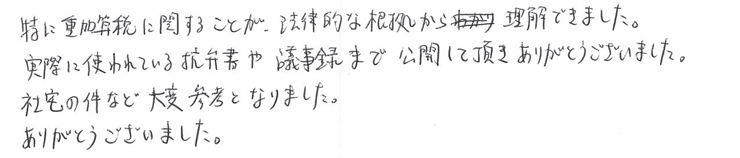 特に重加算税に関することが、法律的な根拠から理解できました。
実際に使われている抗弁書や議事録まで公開して頂きありがとうございました。
社宅の件など大変参考となりました。
ありがとうございました。